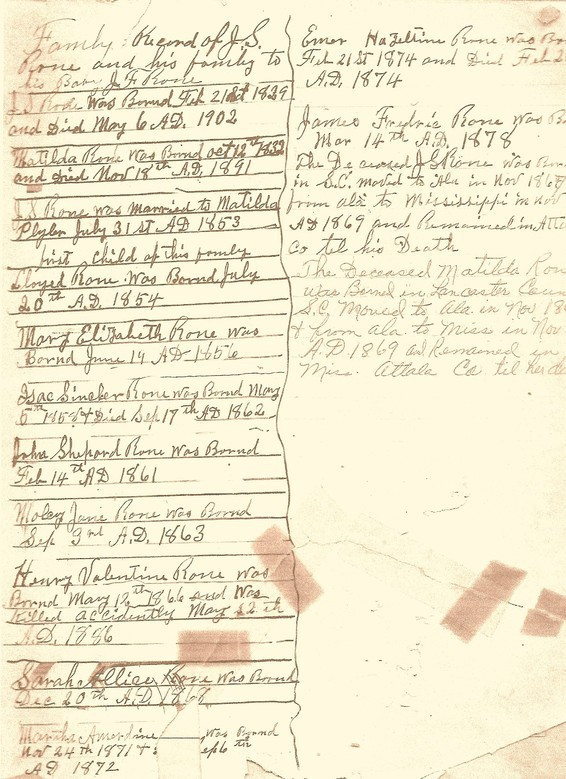 Family Record of J.S.
Rone and his family to
his Baby J.F. Rone
J S Rone Was Bornd Feb 21st 1829
and Died May 6 A.D. 1902
Matilda Rone Was Bornd oct 12th 1832
and died Nov 18th A.D. 1891
J.S Rone was Married to Matilda
Plyler July 31 st AD 1853
first child of this family
Lloyed Rone Was Bornd July
20th A.D. 1854
Mary Elizabeth Rone Was
Bornd June 14 AD 1856
Isac Sincler Rone was Bornd May
5th 1858 & Died Sep 17th AD 1862
John Shepard Rone Was Bornd
Feb 14th AD 1861
Moley Jane Rone Was Bornd
Sep 3rd A.D. 1863
Henry Valentine Rone Was
Bornd May 12th 1866 and Was
Killed accidently May 12th
A.D. 1886
Sarah Allice Rone Was Bornd
Dec 20th A.D. 1868
Martha Amerdine Was Bornd
Nov 24th 1871 +
AD 1872
Emer Hazeltine Rone was Bo
Feb 21st 1874 and Died Feb 2
A.D. 1874
James Fredric Rone was B
Mar 14th A.D. 1878
The Deceased J S Rone was Born
in S.C. moved to Ala in Nov 186
from ala to Mississippi in nov
AD 1869 and Remained in Atta
Co til his Death
The Deceased Matilda Ron
was Bornd in Lancaster Coun
S.C. Moved to Ala in Nov 186
& from ala to Miss in Nov
A.D. 1869 and Remained in
Miss. Attala Co til her de